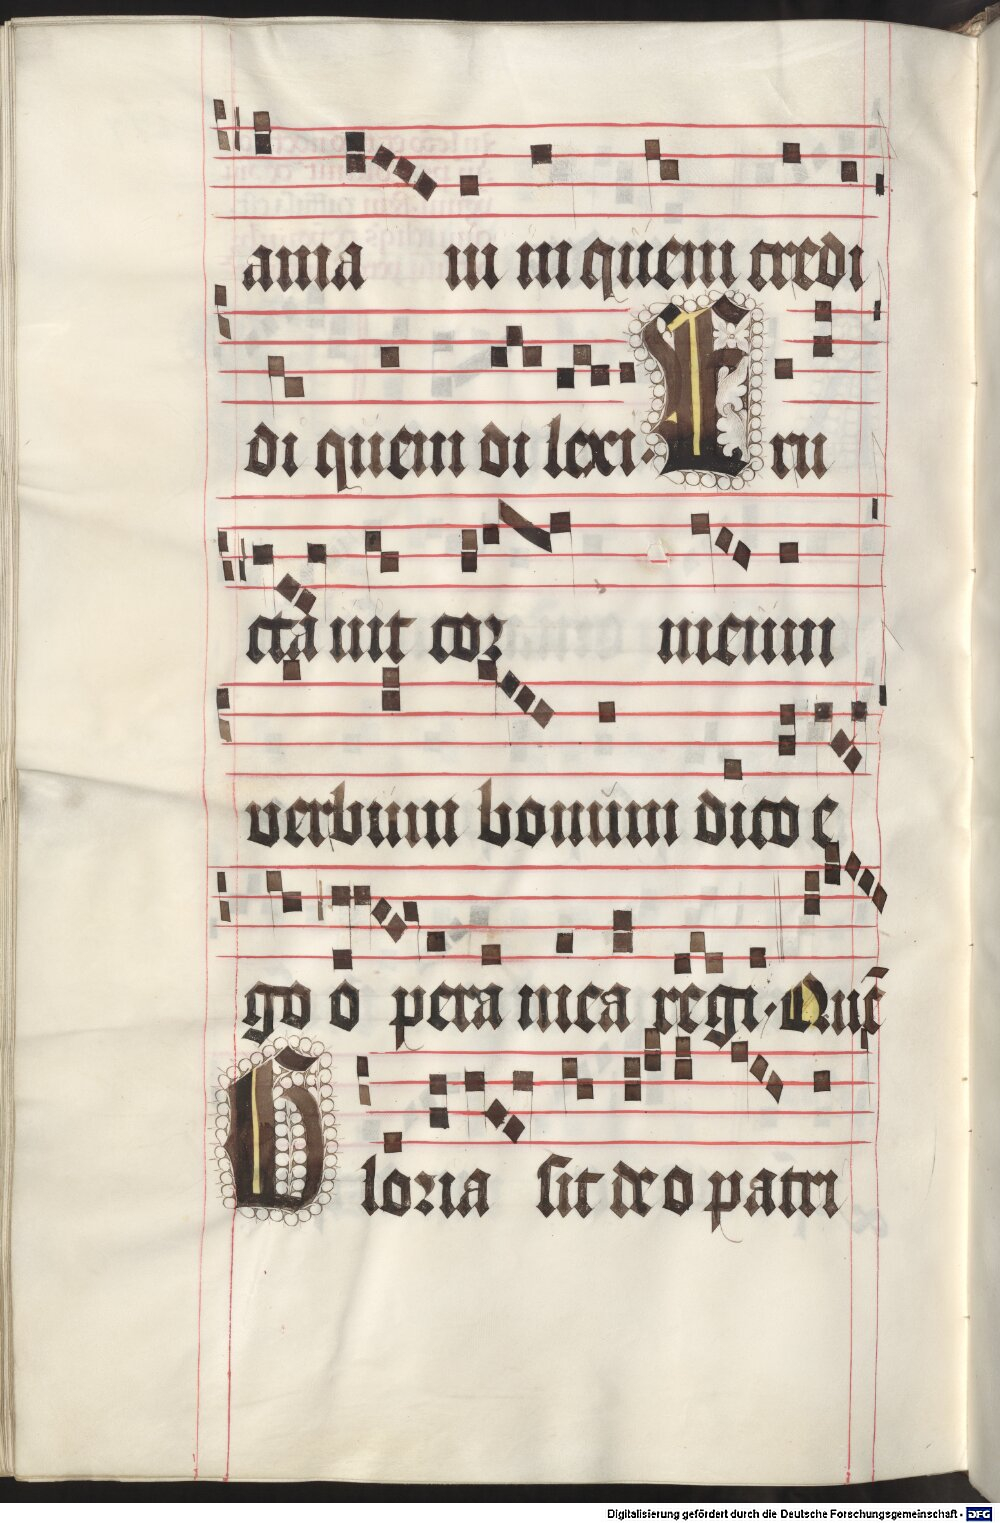 ama ui in quem credi
di quem di lexi. Eru
cta uit cor meum
uerbum bonum dico e
go o pera mea regi. Quē
Gloria sit deo patri
Digitalisierung gefördert durch die Deutsche Forschungsgemeinschaft - DFG